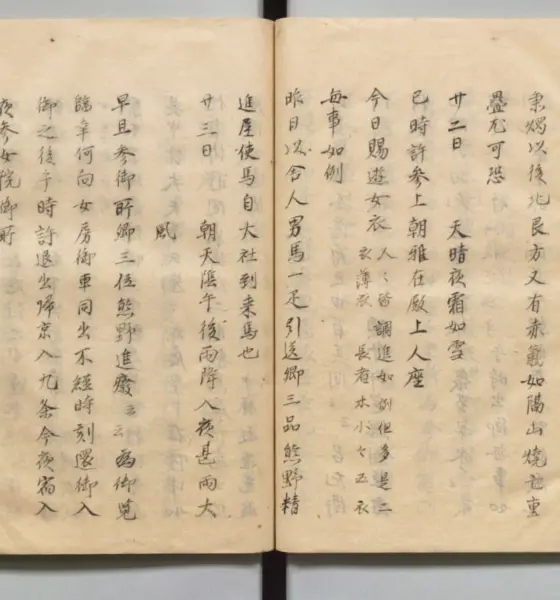 秉燭以後北艮方又有赤氣如隔山燒亡重
疊尤可恐
廿二日　天晴夜霜如雪
巳時許参上朝雅在殿上人座
今日賜遊女衣　人〻皆調進如例但多是二
衣薄衣　長者水小〻五衣
毎事如例
昨日以舎人男馬一疋引送卿三品熊野精
進屋使馬自大社到来馬也
廿三日　朝天陰午後雨降入夜甚雨大
風
早旦参御所卿三位熊野進發云云為御覧
臨幸何向女房御車同出不經時刻還御入
御之後午時許退出歸京入九条今夜宿入
夜参女院御所